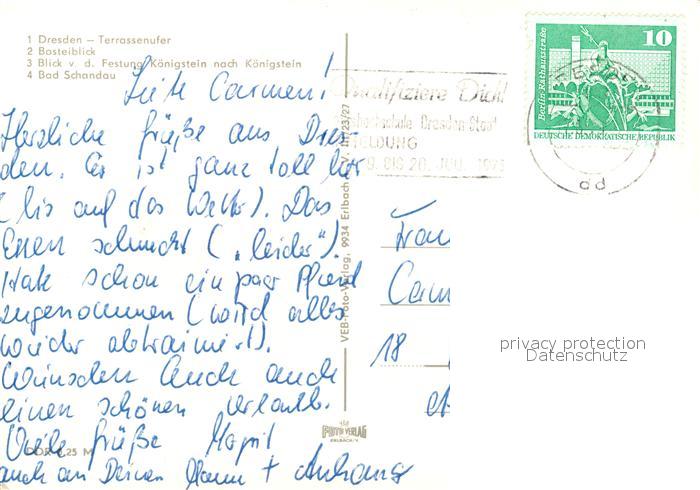 1 Dresden – Terrassenufer
2 Basteiblick
3 Blick v. d. Festung Königstein nach Königstein
4 Bad Schandau
Liebe Carmen!
Herzliche Grüße aus Dres-
den. Es ist ganz toll hier
(bis auf das Wetter). Das
Essen schmeckt („leider").
Hab schon ein paar Pfund
zugenommen (wird alles
wieder abtrainiert).
Wünschen Euch auch
einen schönen Urlaub.
Viele Grüße
auch an Deinen Mann + Anhang
VEB-Foto-Verlag, 9934 Erlbach
V 11/23/27
FOTO VERLAG
ERLBACH/V.
DDR 0,25 M
Qualifiziere Dich!
Volkshochschule Dresden-Stadt
MELDUNG
BIS 20. JULI 197
10
Berlin-Rathausstraße
DEUTSCHE DEMOKRATISCHE REPUBLIK
Frau
Carm
18
privacy protection
Datenschutz